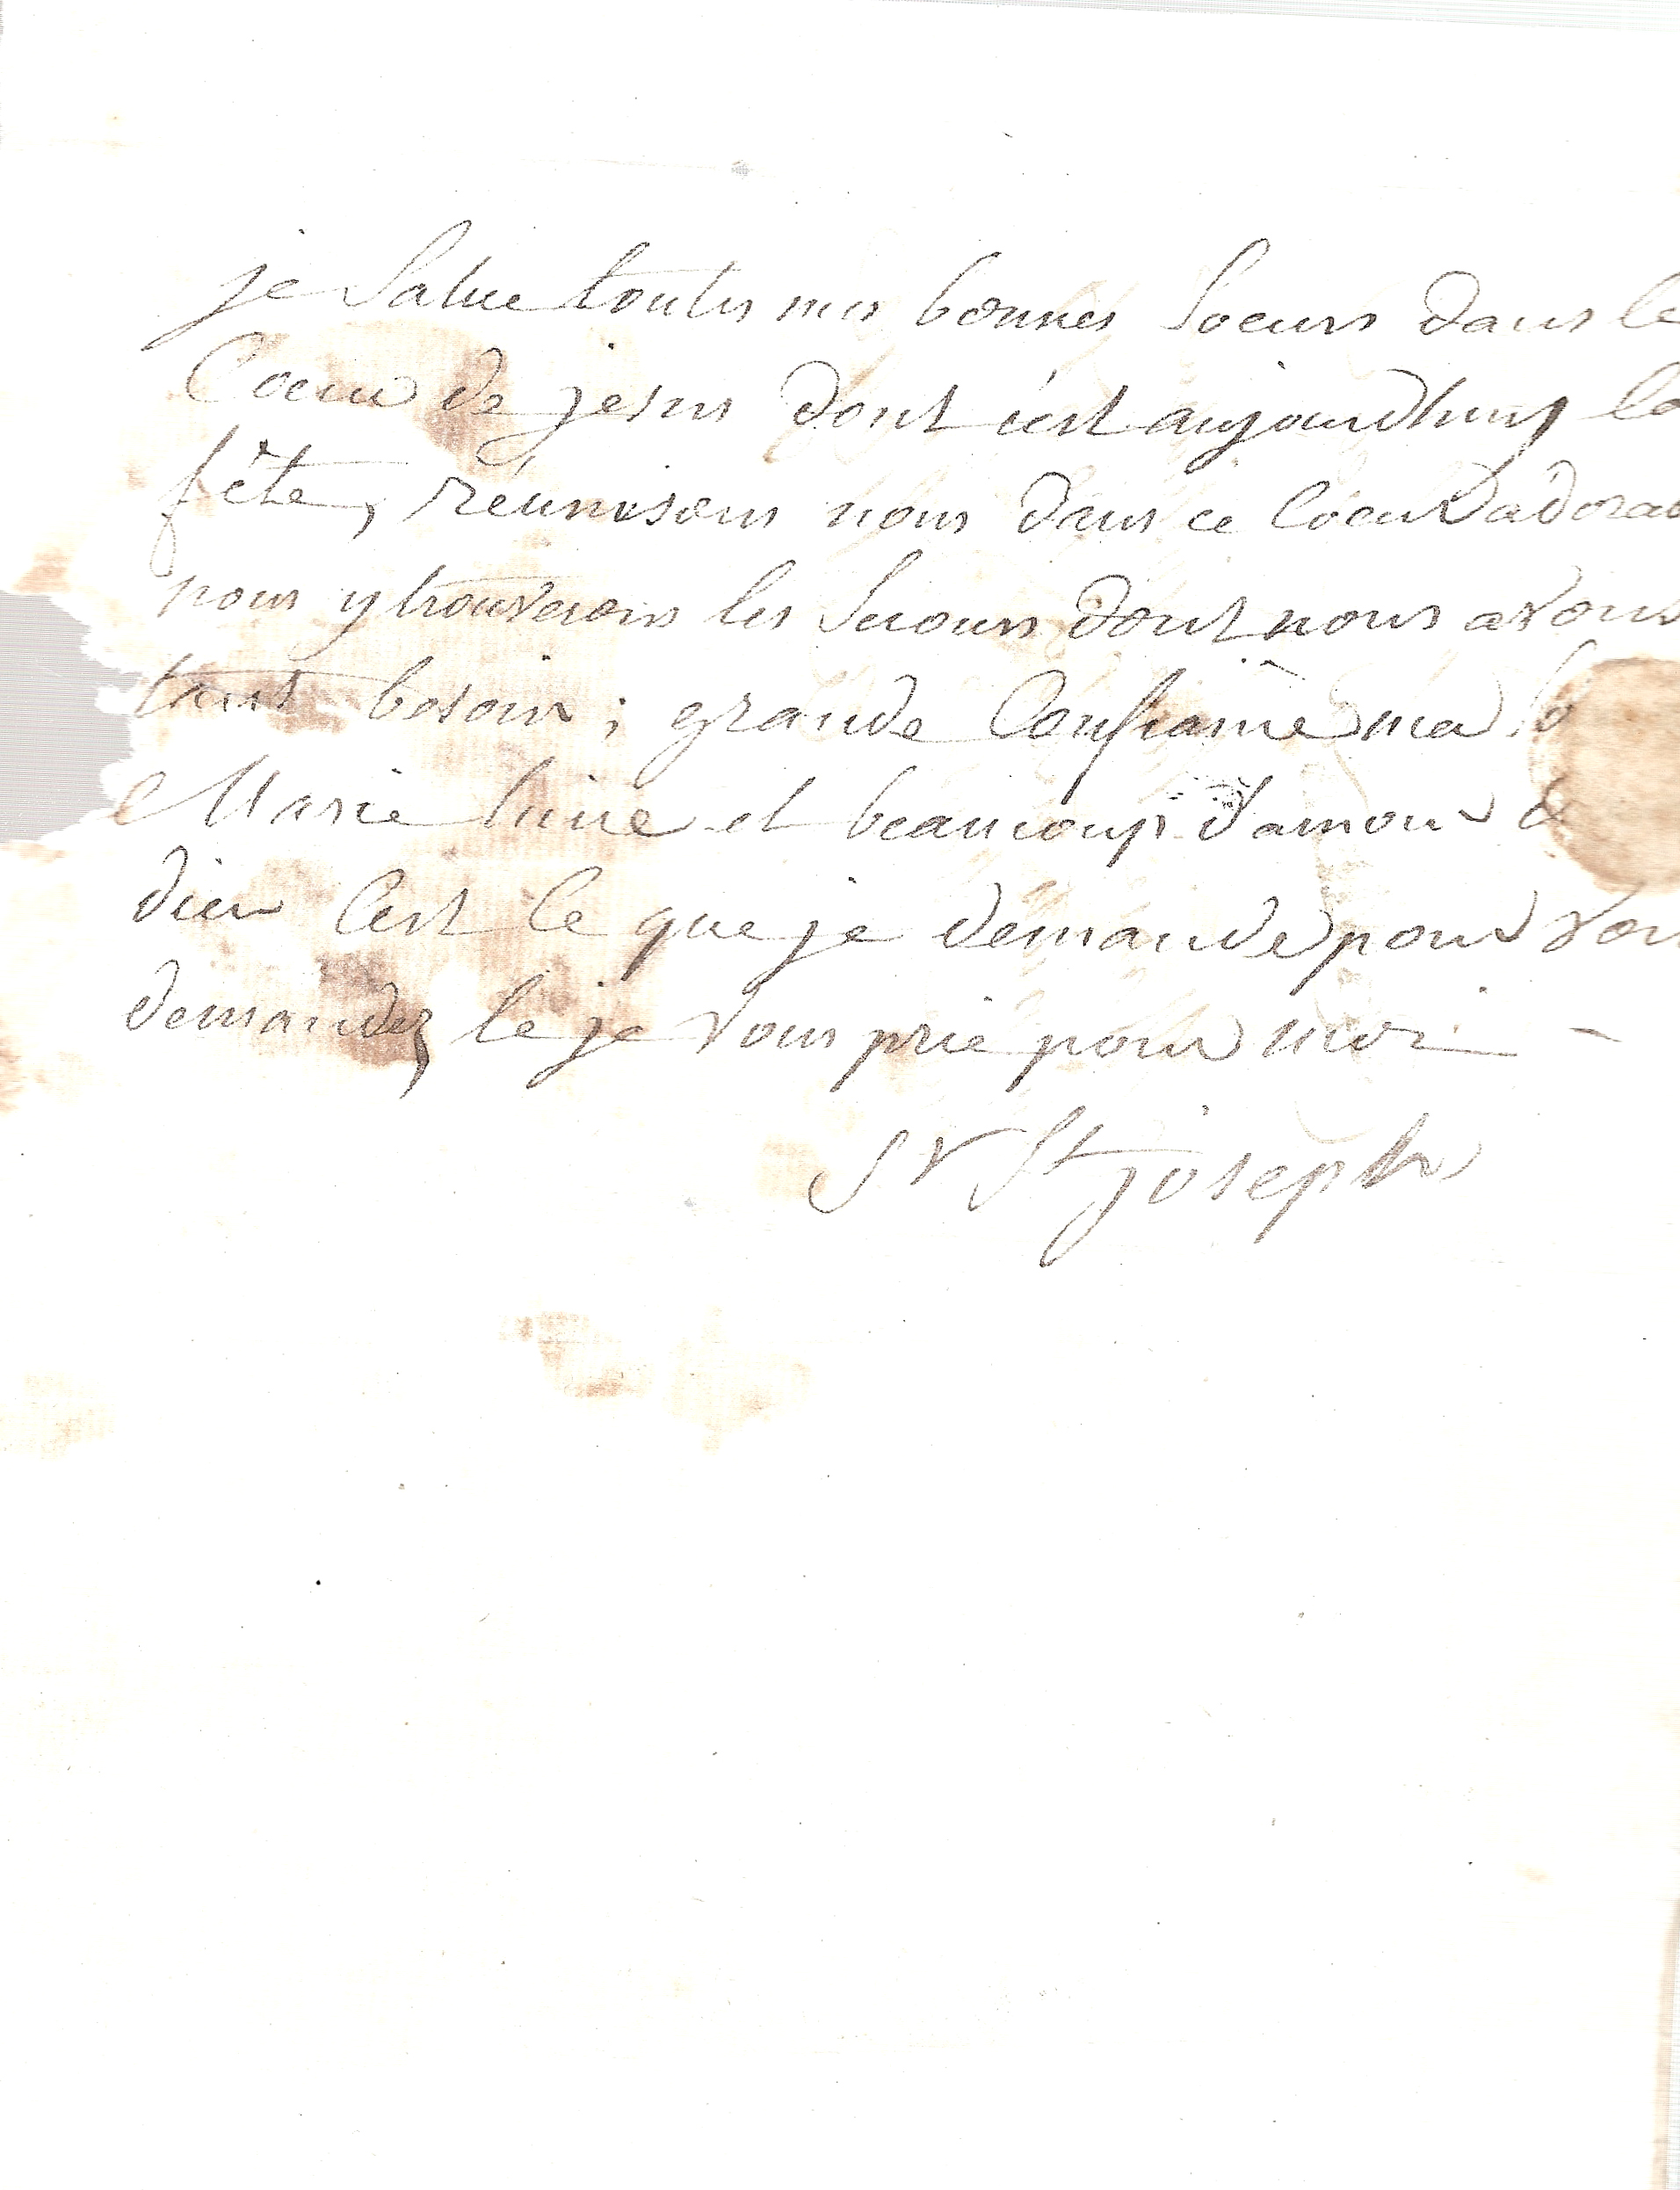 je Salue toutes mes bonnes Soeurs dans le
Coeur de jesus dont c'est aujourdhuy la
fête, réunisons nous dans ce Coeur adorab
nous y trouverons les Secours dont nous avons
tant besoin ; grande Confiance ma
Marie et beaucoup d'amour de
dieu C'est Ce que je demande pour vou
demandez le je vous prie pour moi –
Sr St joseph